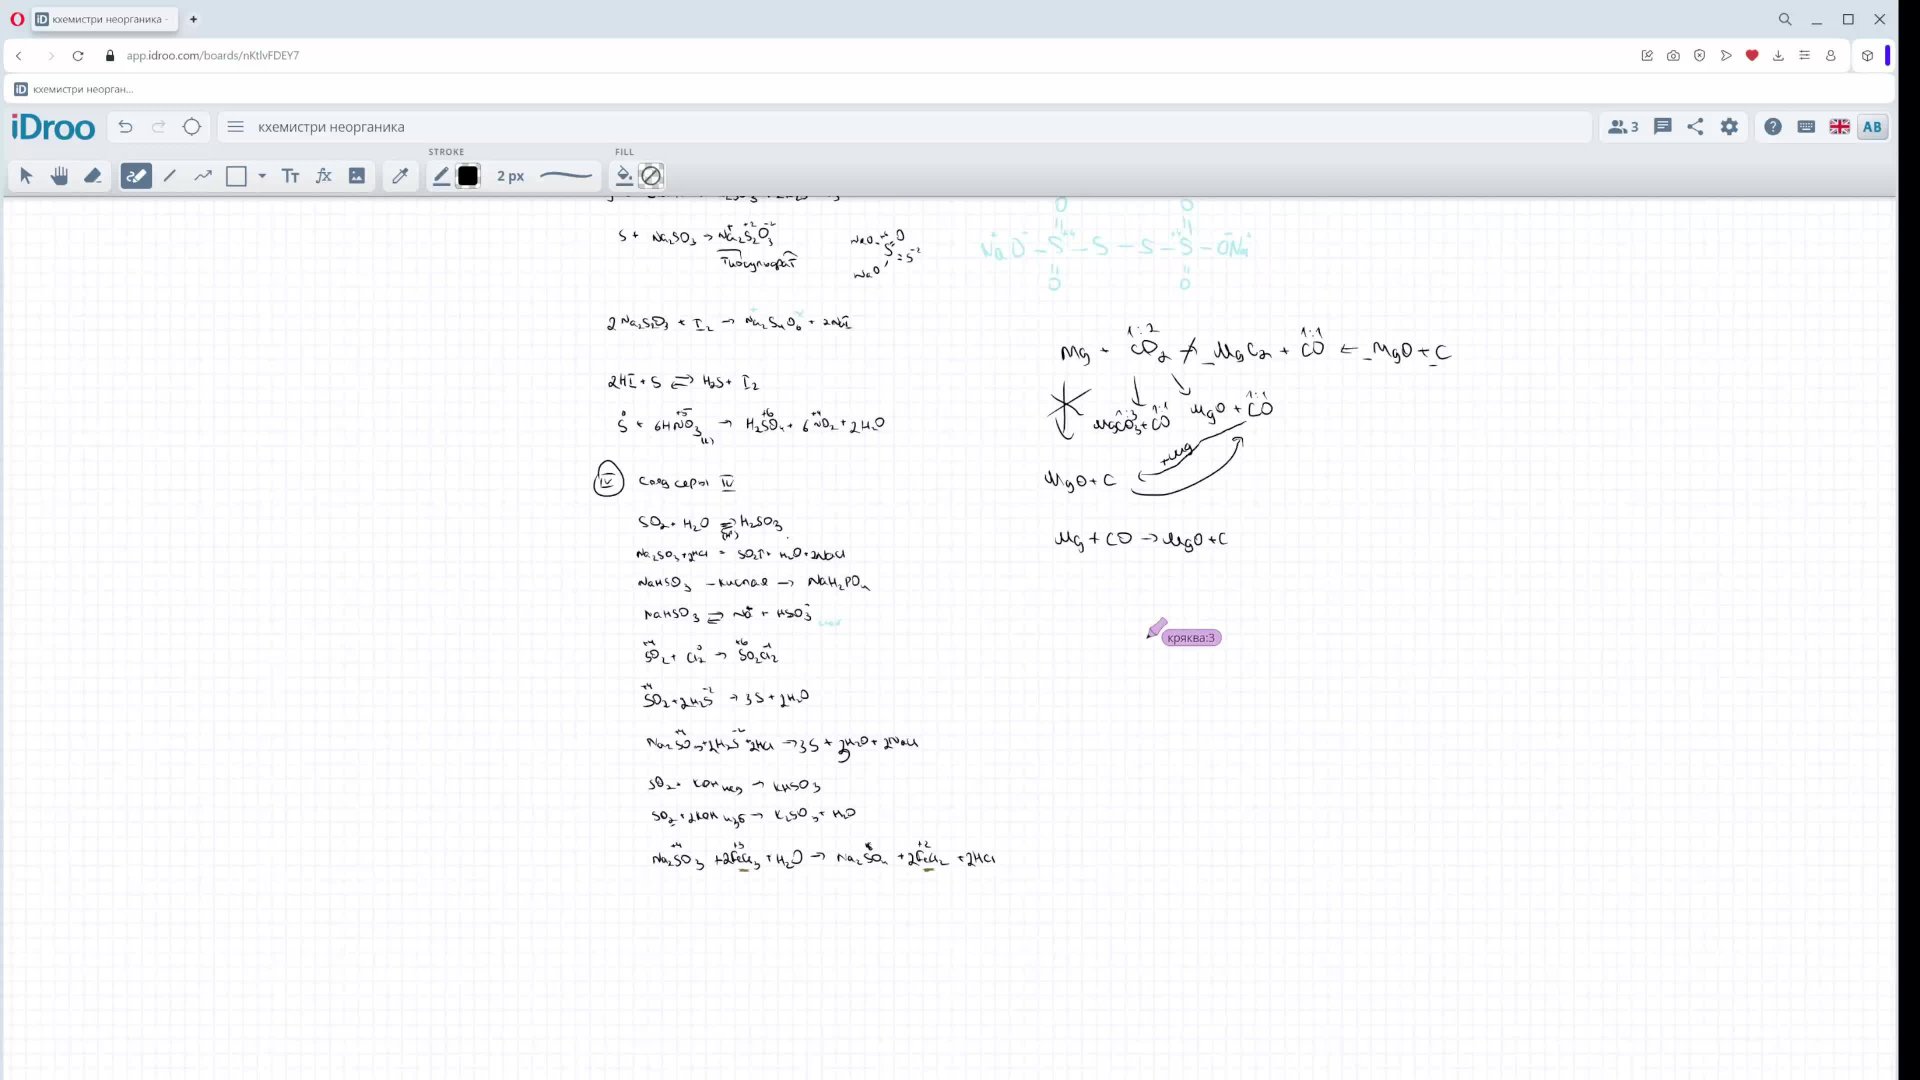 кхемистри неорганика -
app.idroo.com/boards/nKtlvFDEY7
кхемистри неорган...
iDroo
кхемистри неорганика
3
AB
STROKE
FILL
Tт
fx
2 px
S + Na₂SO₃ → Na₂S₂O₃
тиосульфат
NaO O
S
NaO = S⁻²
O O
Na⁺O⁻ – S⁺⁴ – S – S – S⁺⁴ – O⁻Na⁺
O O
2Na₂S₂O₃ + I₂ → Na₂S₄O₆ + 2NaI
2HI + S ⇄ H₂S + I₂
S + 6HNO₃ → H₂SO₄ + 6NO₂ + 2H₂O
IV Соед серы IV
SO₂ + H₂O ⇄ H₂SO₃
Na₂SO₃ + 2HCl = SO₂↑ + H₂O + 2NaCl
NaHSO₃ – кислая → NaH₂PO₄
NaHSO₃ ⇄ Na⁺ + HSO₃⁻
SO₂ + Cl₂ → SO₂Cl₂
SO₂ + 2H₂S → 3S + 2H₂O
Na₂SO₃ + 2H₂S + 2HCl → 3S + 3H₂O + 2NaCl
SO₂ + KOH нед → KHSO₃
SO₂ + 2KOH изб → K₂SO₃ + H₂O
Na₂SO₃ + 2FeCl₃ + H₂O → Na₂SO₄ + 2FeCl₂ + 2HCl
1:2 1:1
Mg + CO₂ ↛ MgC₂ + CO ← MgO + C
1:3 1:1 1:1
MgCO₃ + CO MgO + CO
+Mg
MgO + C
Mg + CO → MgO + C
кряква:3